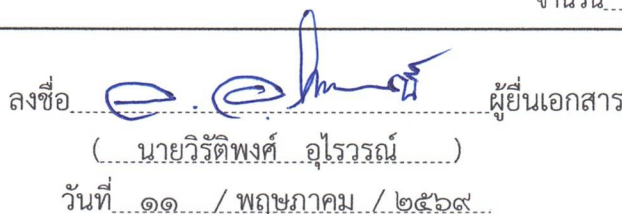 จำนวน
ลงชื่อ ผู้ยื่นเอกสาร
( นายวิรัติพงศ์ อุไรวรณ์ )
วันที่ ๑๑ / พฤษภาคม / ๒๕๖๙